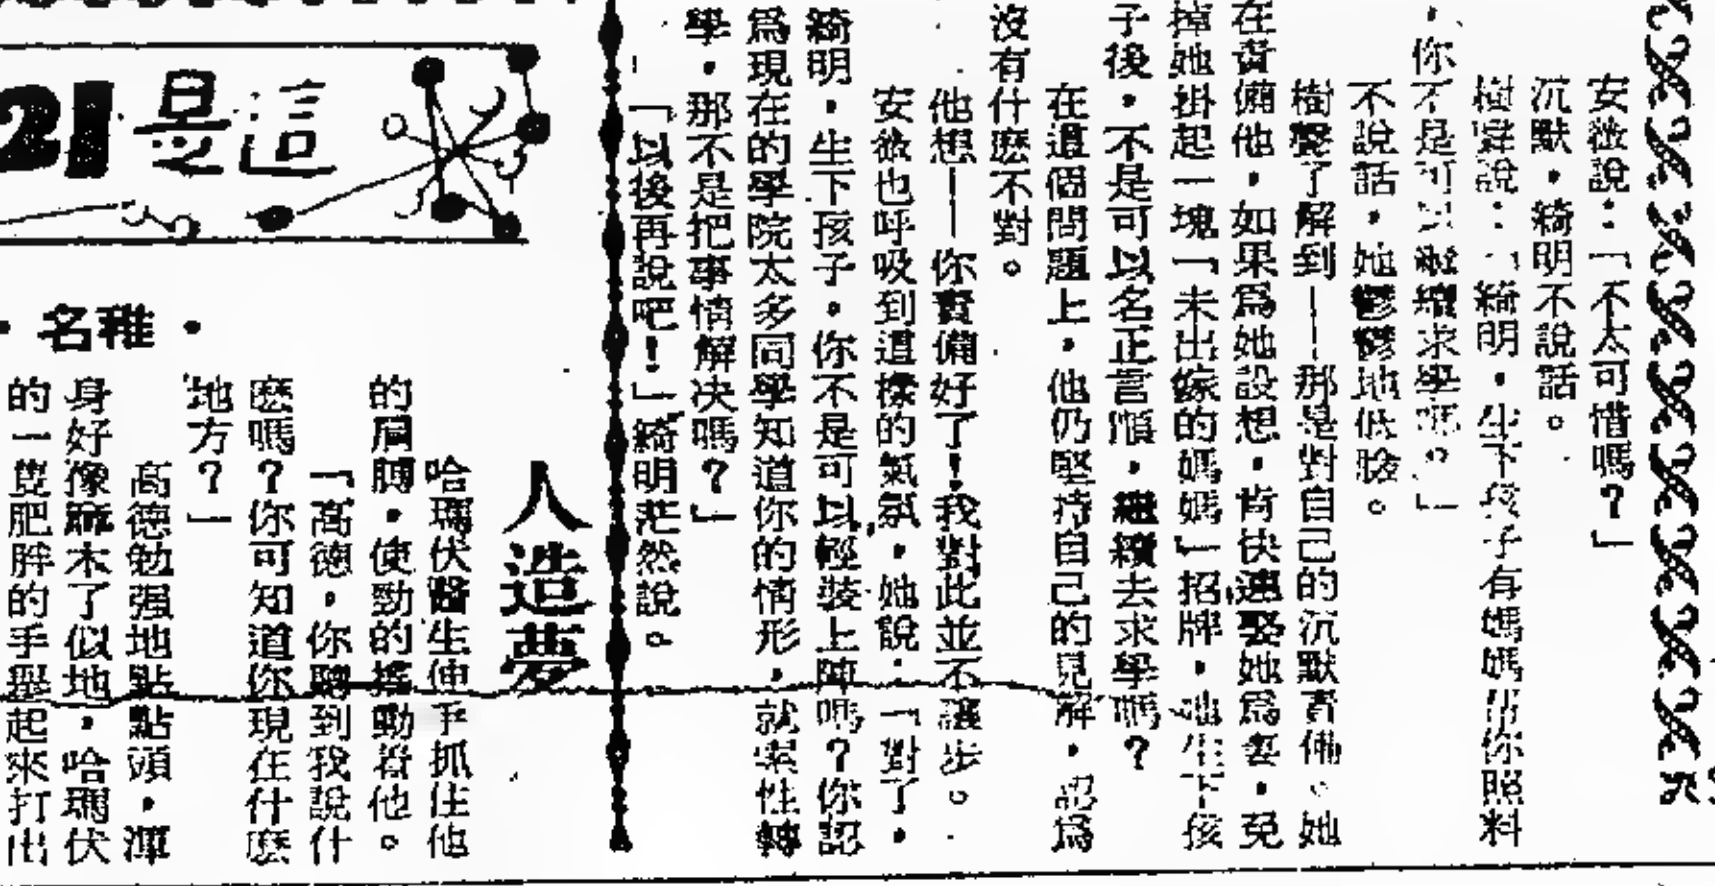 安薇說：「不太可惜嗎？」
沉默，綺明不說話。
樹聲說：「綺明，生下孩子有媽媽幫你照料
，你不是可以繼續求學嗎。」
不說話，她鬱鬱地低臉。
樹聲了解到——那是對自己的沉默責備。她
在責備他，如果爲她設想，肯快速娶她爲妻，免
掉她掛起一塊「未出嫁的媽媽」招牌，她生下孩
子後，不是可以名正言順，繼續去求學嗎？
在這個問題上，他仍堅持自己的見解，認爲
沒有什麽不對。
他想——你責備好了！我對此並不讓步。
安薇也呼吸到這樣的氣氛，她說：「對了，
綺明，生下孩子，你不是可以輕裝上陣嗎？你認
爲現在的學院太多同學知道你的情形，就索性轉
學，那不是把事情解决嗎？」
「以後再說吧！」綺明茫然說。
這是21
人造夢
·稚名·
哈瑪伏醫生伸手抓住他
的肩膊，使勁的搖動着他。
「高德，你聽到我說什
麽嗎？你可知道你現在什麽
地方？」
高德勉强地點點頭，渾
身好像麻木了似地，哈瑪伏
的一隻肥胖的手舉起來打出